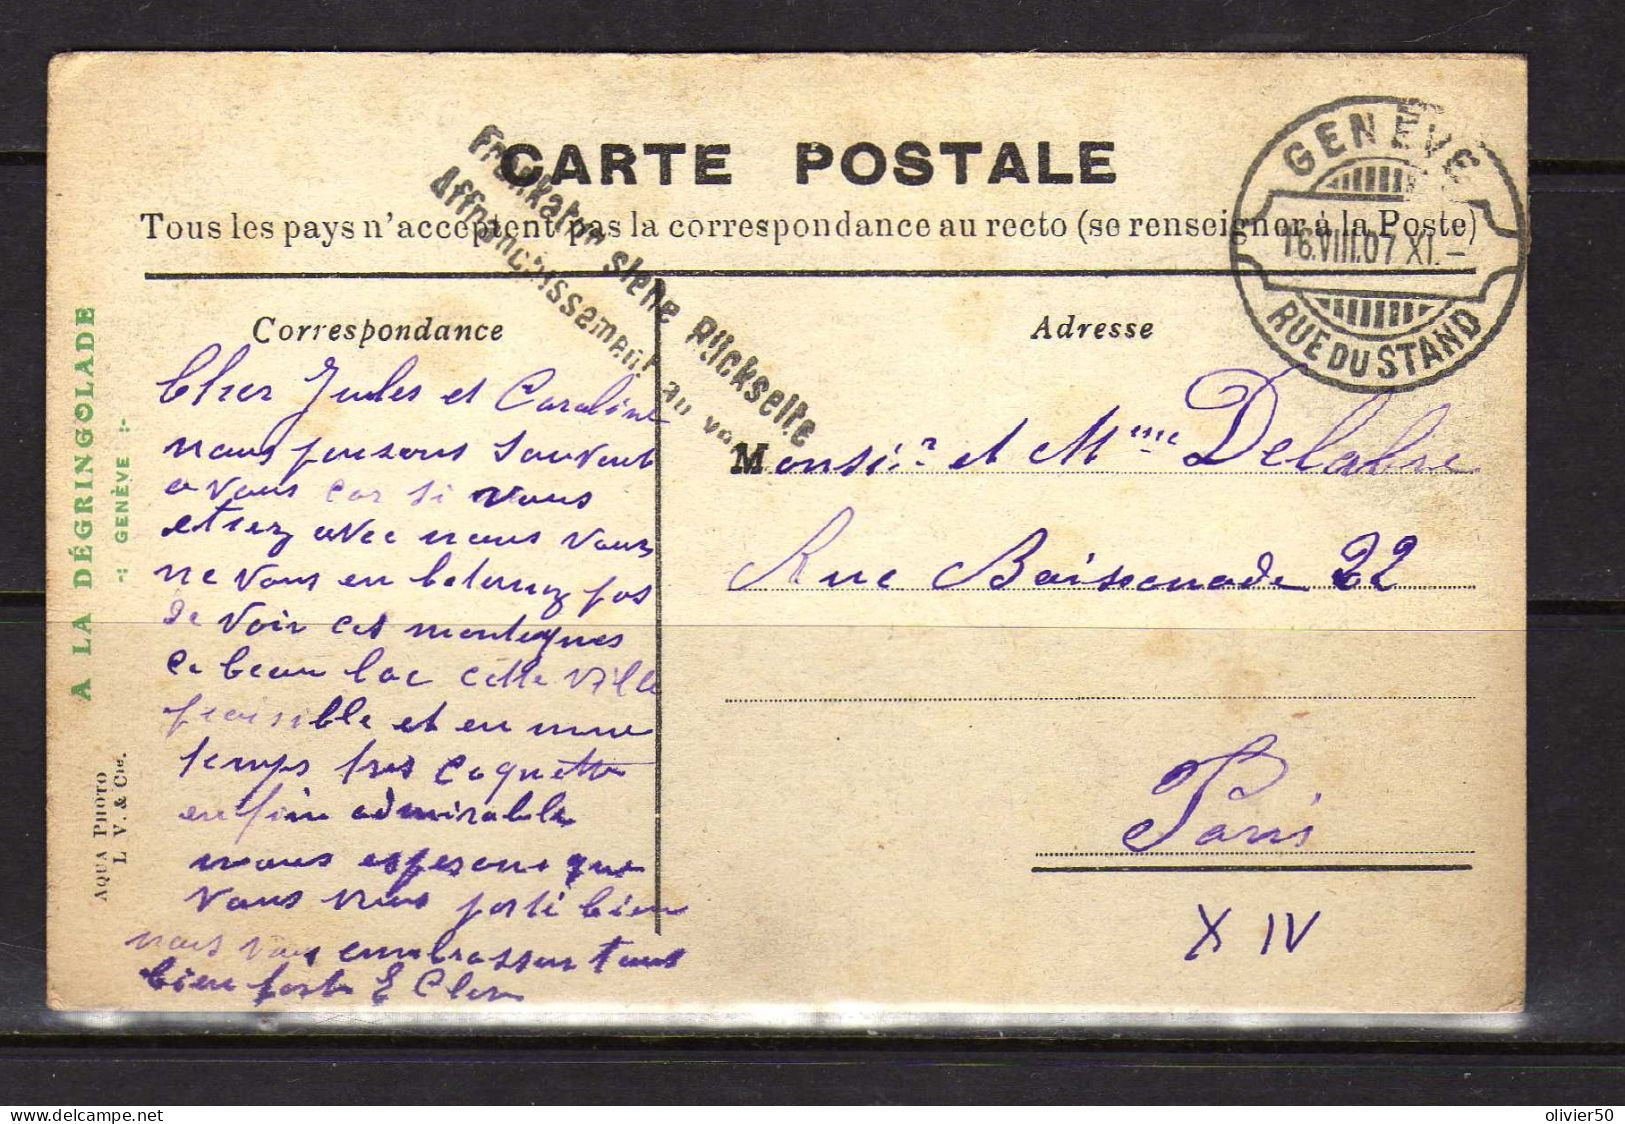 CARTE POSTALE
Tous les pays n'acceptent pas la correspondance au recto (se renseigner à la Poste)
Frankatur siehe Rückseite
Affranchissement au ver
GENÈVE
16.VIII.07 XI.–
RUE DU STAND
Correspondance
Cher Jules et Caroline
nous pensons souvent
a vous car si vous
etiez avec nous vous
ne vous en
de voir ces montagnes
ce beau lac cette ville
paisible et en même
temps tres coquette
enfin admirable
nous esperons que
vous vous porté bien
nous vous embrasson tous
bien fort E
Adresse
Monsir et Mme Delabre
Rue Boissonade 22
Paris
XIV
A LA DÉGRINGOLADE
-: GENÈVE :-
AQUA PHOTO
L V. & Cie.
delcampe.net
olivier50